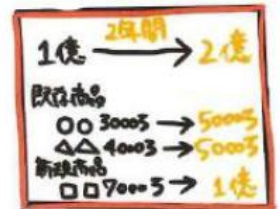 2年間
1億 → 2億
既存商品
○○ 3000万 → 5000万
△△ 4000万 → 5000万
新規商品
□□ 7000万 → 1億